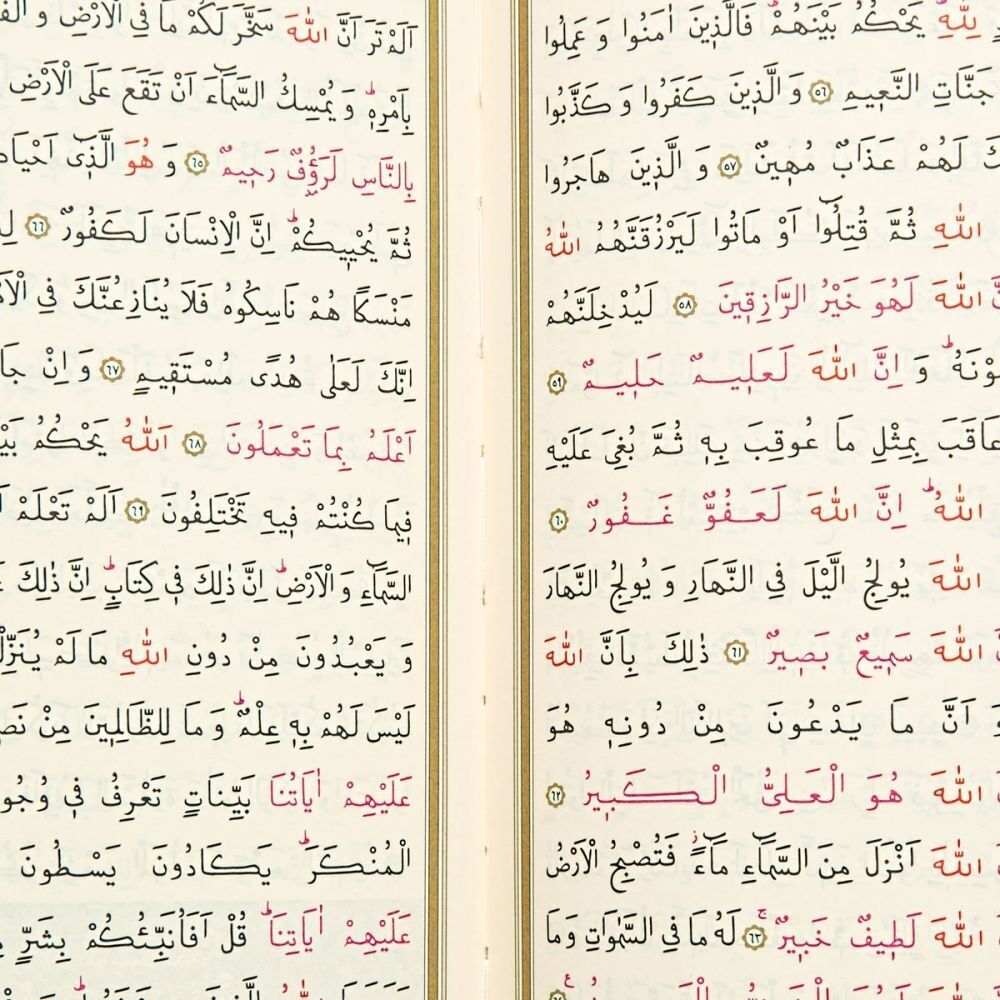 لِلّٰهِ يَحْكُمُ بَيْنَهُمْ فَالَّذ۪ينَ اٰمَنُوا وَ عَمِلُوا
جَنَّاتِ النَّع۪يمِ ﴿٥٦﴾ وَ الَّذ۪ينَ كَفَرُوا وَ كَذَّبُوا
لَهُمْ عَذَابٌ مُه۪ينٌ ﴿٥٧﴾ وَ الَّذ۪ينَ هَاجَرُوا
اللّٰهِ ثُمَّ قُتِلُٓوا اَوْ مَاتُوا لَيَرْزُقَنَّهُمُ اللّٰهُ
اللّٰهَ لَهُوَ خَيْرُ الرَّازِق۪ينَ ﴿٥٨﴾ لَيُدْخِلَنَّهُمْ
وَ اِنَّ اللّٰهَ لَعَل۪يمٌ حَل۪يمٌ ﴿٥٩﴾
عَاقَبَ بِمِثْلِ مَا عُوقِبَ بِه۪ ثُمَّ بُغِيَ عَلَيْهِ
اللّٰهُۜ اِنَّ اللّٰهَ لَعَفُوٌّ غَفُورٌ ﴿٦٠﴾
اللّٰهَ يُولِجُ الَّيْلَ فِي النَّهَارِ وَ يُولِجُ النَّهَارَ
اللّٰهَ سَم۪يعٌ بَص۪يرٌ ﴿٦١﴾ ذٰلِكَ بِاَنَّ اللّٰهَ
وَ اَنَّ مَا يَدْعُونَ مِنْ دُونِه۪ هُوَ
اللّٰهَ هُوَ الْعَلِيُّ الْكَب۪يرُ ﴿٦٢﴾
اللّٰهَ اَنْزَلَ مِنَ السَّمَٓاءِ مَٓاءًۘ فَتُصْبِحُ الْاَرْضُ
اللّٰهَ لَط۪يفٌ خَب۪يرٌۚ ﴿٦٣﴾ لَهُ مَا فِي السَّمٰوَاتِ وَمَا
اَلَمْ تَرَ اَنَّ اللّٰهَ سَخَّرَ لَكُمْ مَا فِي الْاَرْضِ وَ
بِاَمْرِه۪ۜ وَ يُمْسِكُ السَّمَٓاءَ اَنْ تَقَعَ عَلَى الْاَرْضِ
بِالنَّاسِ لَرَؤُ۫فٌ رَح۪يمٌ ﴿٦٥﴾ وَ هُوَ الَّذ۪ٓي
ثُمَّ يُحْي۪يكُمْۜ اِنَّ الْاِنْسَانَ لَكَفُورٌ ﴿٦٦﴾
مَنْسَكًا هُمْ نَاسِكُوهُ فَلَا يُنَازِعُنَّكَ فِي
اِنَّكَ لَعَلٰى هُدًى مُسْتَق۪يمٍ ﴿٦٧﴾ وَ اِنْ
اَعْلَمُ بِمَا تَعْمَلُونَ ﴿٦٨﴾ اَللّٰهُ يَحْكُمُ
ف۪يمَا كُنْتُمْ ف۪يهِ تَخْتَلِفُونَ ﴿٦٩﴾ اَلَمْ تَعْلَمْ
السَّمَٓاءِ وَ الْاَرْضِۜ اِنَّ ذٰلِكَ ف۪ي كِتَابٍۜ اِنَّ ذٰلِكَ
وَ يَعْبُدُونَ مِنْ دُونِ اللّٰهِ مَا لَمْ
لَيْسَ لَهُمْ بِه۪ عِلْمٌۜ وَ مَا لِلظَّالِم۪ينَ مِنْ
عَلَيْهِمْ اٰيَاتُنَا بَيِّنَاتٍ تَعْرِفُ ف۪ي
الْمُنْكَرَۜ يَكَادُونَ يَسْطُونَ
عَلَيْهِمْ اٰيَاتِنَاۜ قُلْ اَفَاُنَبِّئُكُمْ بِشَرٍّ